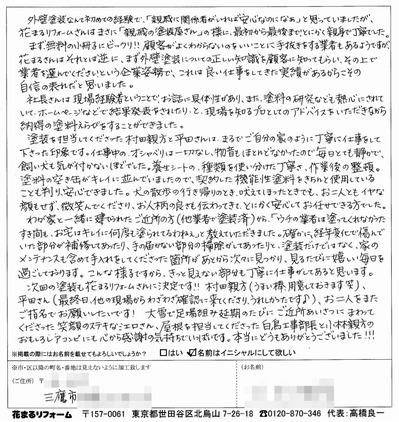 外壁塗装なんて初めての経験で、「親戚に関係者がいれば安心なのになぁ」と思っていましたが、
花まるリフォームさんはまさに「親戚の塗装屋さん」の様に、最初から最後までとにかく親身で丁寧でした。
まず無料の小冊子にビックリ!! 顧客がよくわからないのをいいことに手抜きをする業者もあるようですが、
花まるさんはそれとは逆に、まず外壁塗装についての正しい知識を顧客に知ってもらい、その上で
業者を選んでくださいという企業姿勢で、これは良い仕事をしてきた実績があるからこその
自信の表れだと思いました。
社長さんは現場経験者ということでお話に具体性があり、また、塗料の研究なども熱心にされて
いて、ホームページなどで結果発表をされたりと、現場を知るプロとしてのアドバイスをいただきながら
納得の塗料えらびをすることができました。
塗装を担当してくださった村田親方と平田さんは、まるでご自分の家のように丁寧に仕事をして
下さった印象です。仕事中のオシャベリは一切なし、物音もほとんどなかったので毎日とても静かで、
飼い犬も気が付かないほどでした。養生シートの種類を使い分けた丁寧さ、作業後の整理、
塗料の空き缶がキレイに並んでいましたので、契約した機能性塗料をきちんと使用している
ことも判り安心できました。犬の散歩の行き帰りのとき、吠えてしまったときでも、お二人ともイヤな
顔もせず、微笑んでくださり、お人柄の良さも伝わってきて、とにかく安心してお任せできる方でした。
わが家と一緒に建られたご近所の方(他業者で塗装済)から、「ウチの業者は塗ってくれなかった
すき間も、お宅はキレイに何度も塗られてるわねぇ」と教えていただきました。確かに、経年変化で傷んで
いた部分が補修してあったり、手の届かない部分の掃除がしてあったりと、塗装だけではなく、家の
メンテナスも含めて手入れをしてくださった箇所があとから次々に見つかり、見るたびに嬉しい毎日を
過ごしております。こんな様子ですから、きっと見えない部分も丁寧に仕事がしてあると思います。
次回の塗装も花まるリフォームさんに決定です!! 村田親方(うまい棒、用意しておきます笑)、
平田さん(最終日、他の現場からわざわざ確認に来てくださり、うれしかったです♪)、お二人をまた
ご指名でお願いしたいです! 大雪で足場組が延期のたびにご近所あいさつにまわって
くださった笑顔のステキなシエロさん、屋根を担当してくださった白鳥工事部長と小林親方の
おもしろしアニコンビにも心から感謝の気持ちでいっぱいです。本当にどうもありがとうございました!!!
※掲載の際にはお名前を載せてもよろしいでしょうか? □はい ☑お名前はイニシャルにして欲しい
※市・区以降の町名・番地は見えないように加工致します
(ご住所) 〒
三鷹市
(お名前)
花まるリフォーム 〒157-0061 東京都世田谷区北烏山7-26-18 ☎0120-870-346 代表:高橋良一